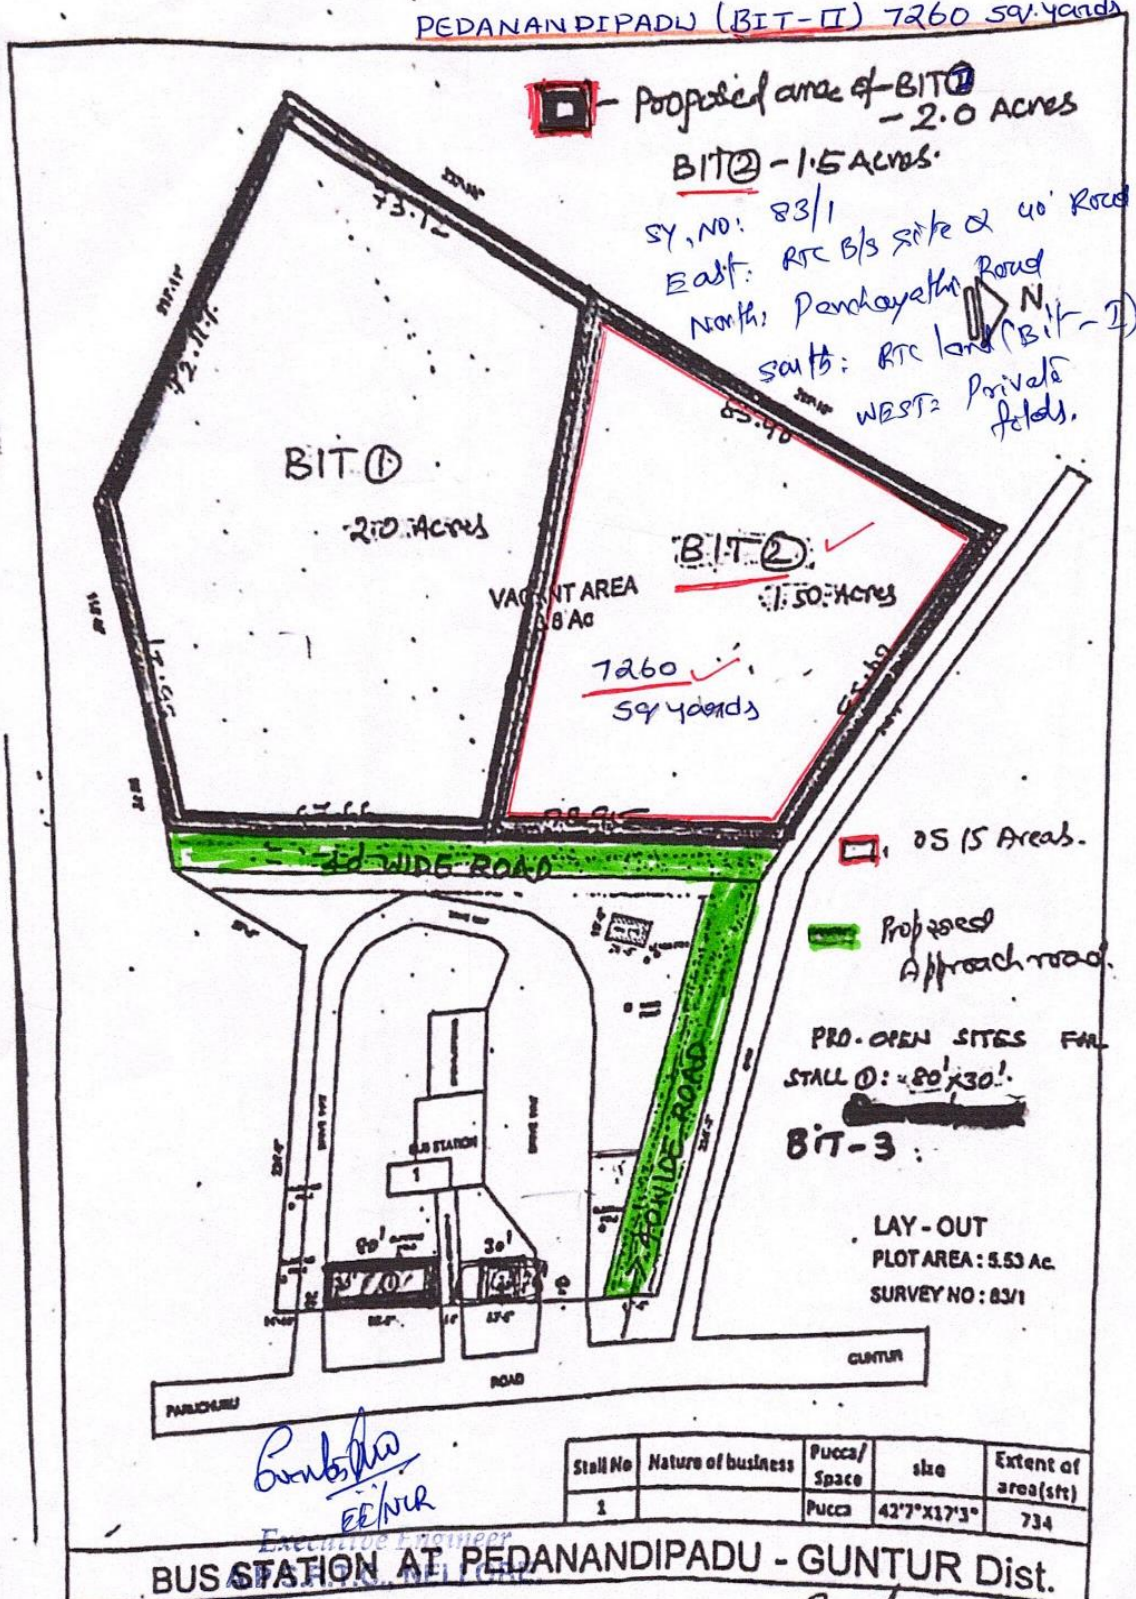 PEDANANDIPADU (BIT-II) 7260 sq.yards
- Proposed area of BIT①
- 2.0 Acres
BIT② - 1.5 Acres.
SY.NO: 83/1
East: RTC B/s site & 40' Road
North: Panchayathi Road
N
South: RTC land (Bit-I)
WEST: Private
fields.
73.12
72.17
83.90
BIT ①
2.0 Acres
BIT ②
1.50 Acres
VACANT AREA
3.8 Ac
7260
sq yards
WIDE ROAD
OS IS Areas.
Proposed
Approach road.
PRO. OPEN SITES FAR
STALL ①: 80'x30'.
BIT-3 :
WIDE ROAD
BUS STATION
1
80'
30'
LAY-OUT
PLOT AREA : 5.53 Ac.
SURVEY NO : 83/1
GUNTUR
ROAD
PARUCHURU
EE/NLR
Executive Engineer
A.P.S.R.T.C., NELLORE.
Stall No Nature of business Pucca/ Space size Extent of area(sft)
1 Pucca 42'7"X17'3" 734
BUS STATION AT PEDANANDIPADU - GUNTUR Dist.